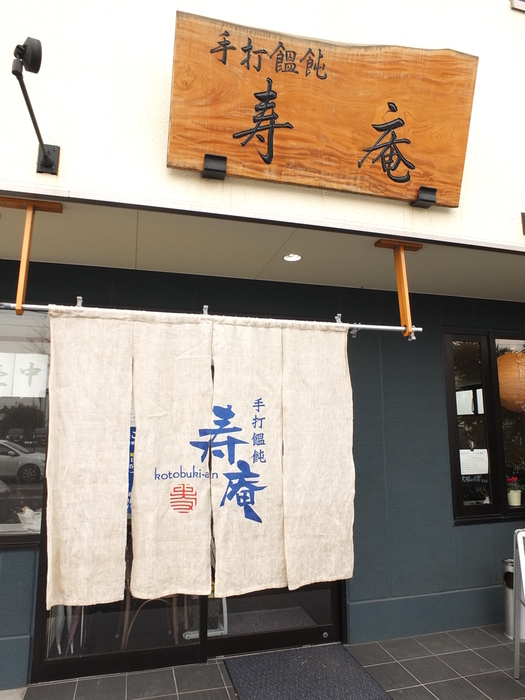 手打饂飩
寿庵
手打饂飩
寿庵
kotobuki-an
寿
中